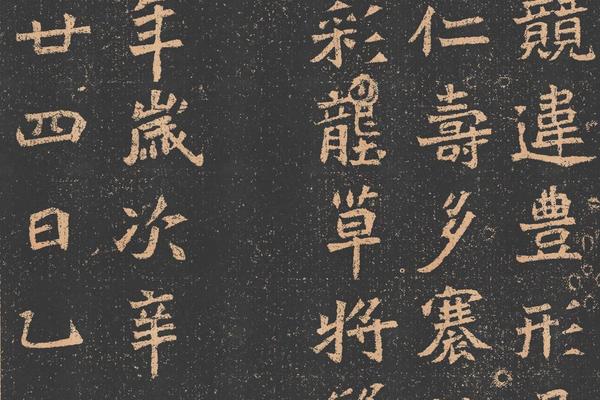 競違豊形
仁壽多褰
彩壟草將
年歲次辛
廿四日乙